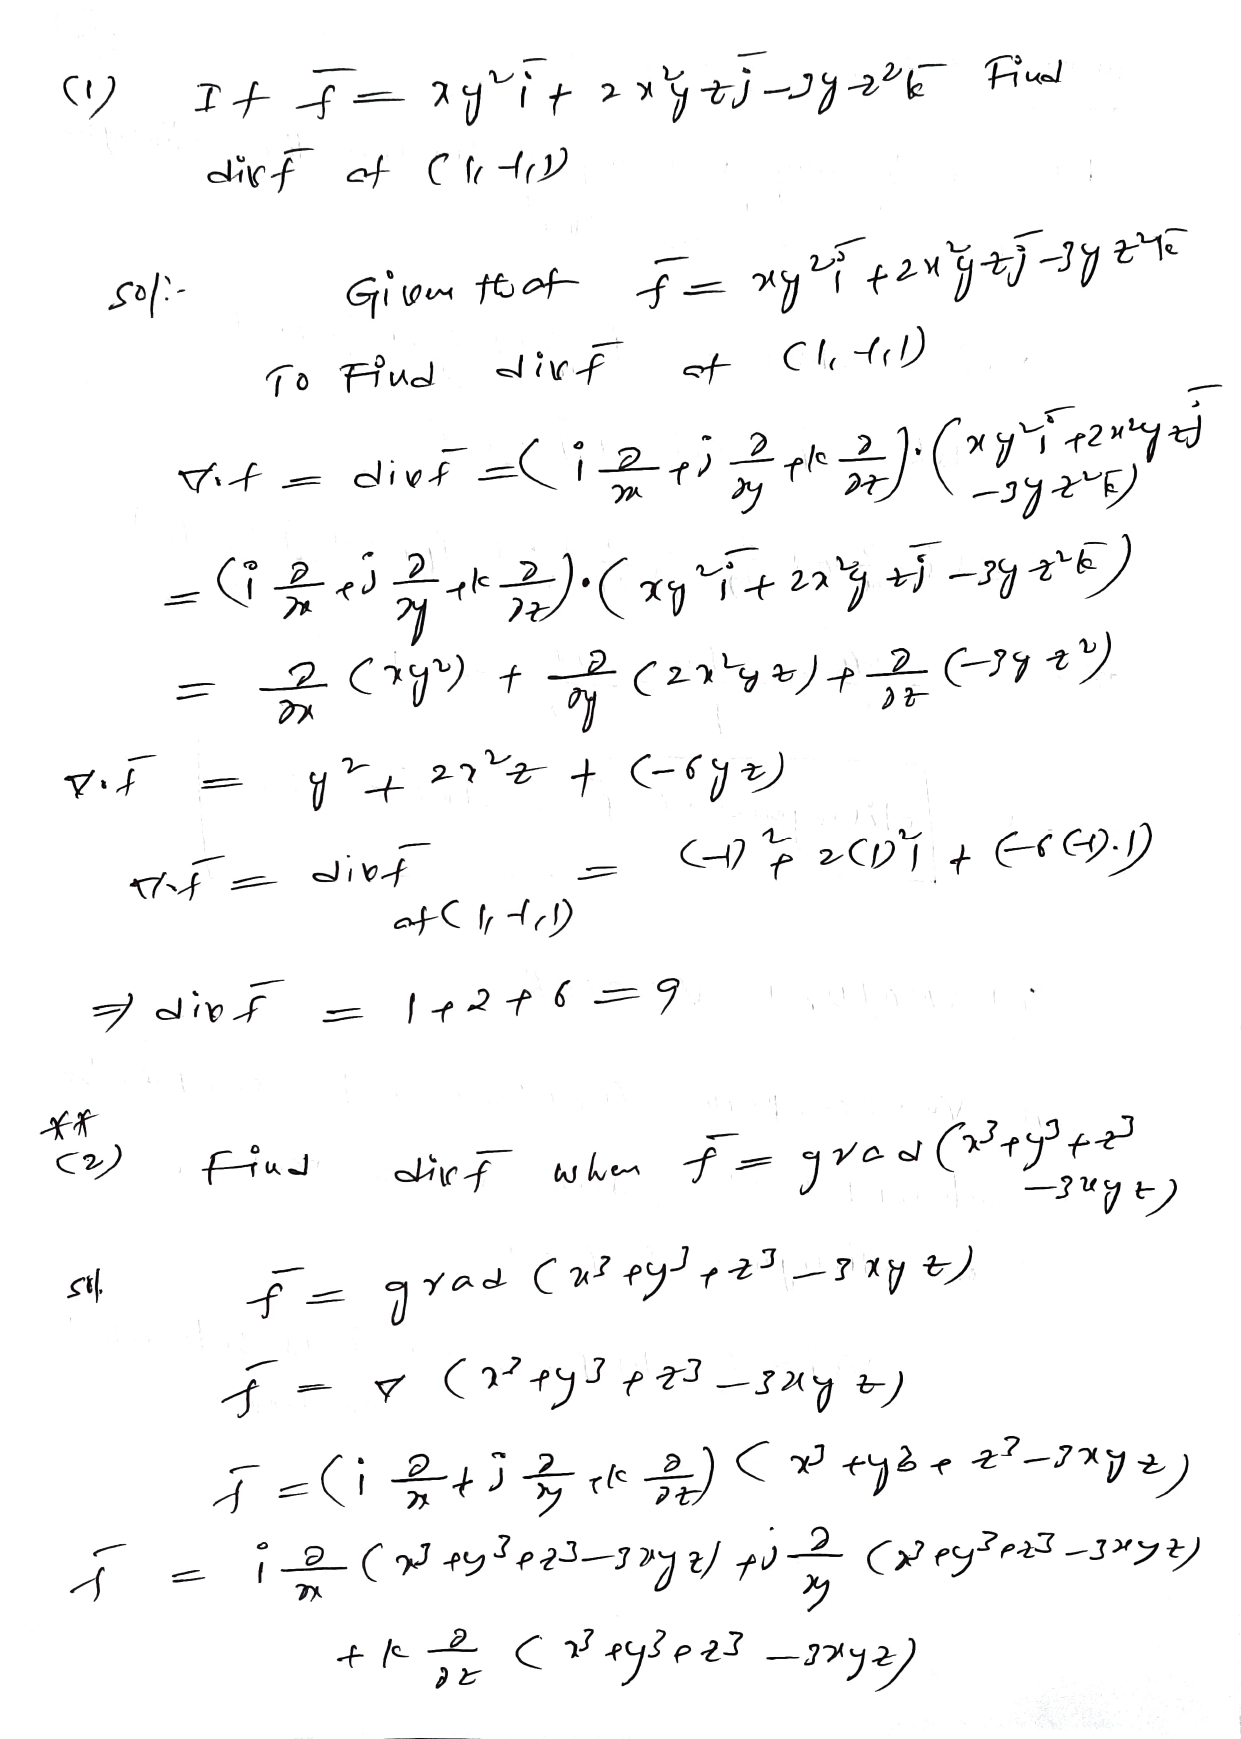 (1) If f̄ = xy² ī + 2x²yz j̄ - 3yz² k̄ Find
div f̄ at (1, -1, 1)
Sol:- Given that f̄ = xy² ī + 2x²yz j̄ - 3yz² k̄
To Find div f̄ at (1, -1, 1)
∇.f = div f̄ = (i ∂/∂x + j ∂/∂y + k ∂/∂z).(xy² ī + 2x²yz j̄
-3yz² k̄)
= (i ∂/∂x + j ∂/∂y + k ∂/∂z).(xy² ī + 2x²yz j̄ - 3yz² k̄)
= ∂/∂x (xy²) + ∂/∂y (2x²yz) + ∂/∂z (-3yz²)
∇.f̄ = y² + 2x²z + (-6yz)
∇.f̄ = div f̄ = (-1)² + 2(1)²1 + (-6(-1).1)
at (1, -1, 1)
⇒ div f̄ = 1+2+6 = 9
**
(2) Find div f̄ when f̄ = grad (x³+y³+z³
-3xyz)
sol. f̄ = grad (x³+y³+z³-3xyz)
f̄ = ∇ (x³+y³+z³-3xyz)
f̄ = (i ∂/∂x + j ∂/∂y + k ∂/∂z) (x³+y³+z³-3xyz)
f̄ = i ∂/∂x (x³+y³+z³-3xyz) + j ∂/∂y (x³+y³+z³-3xyz)
+ k ∂/∂z (x³+y³+z³-3xyz)